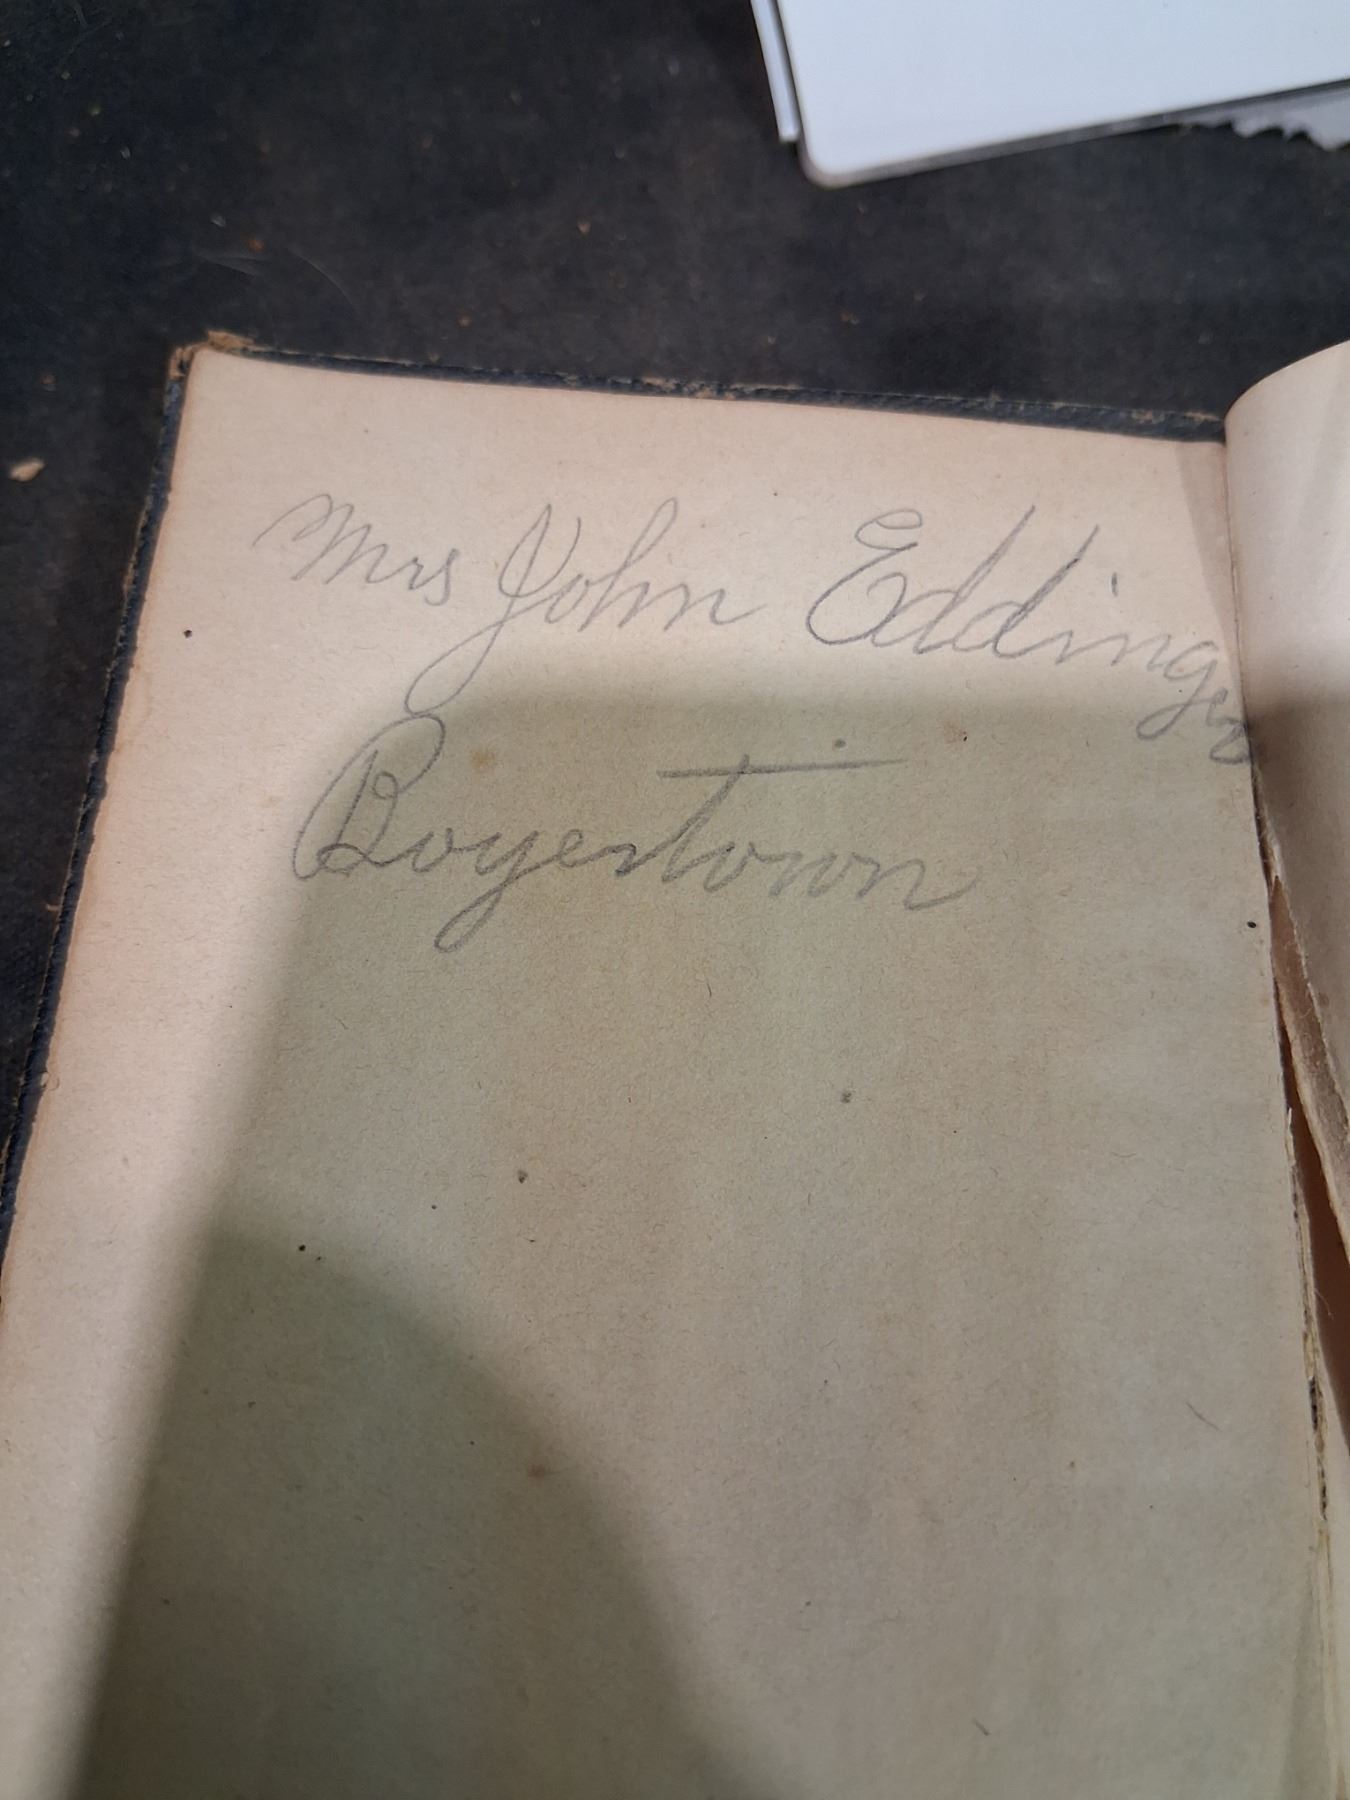 Mrs John Eddinger
Boyertown